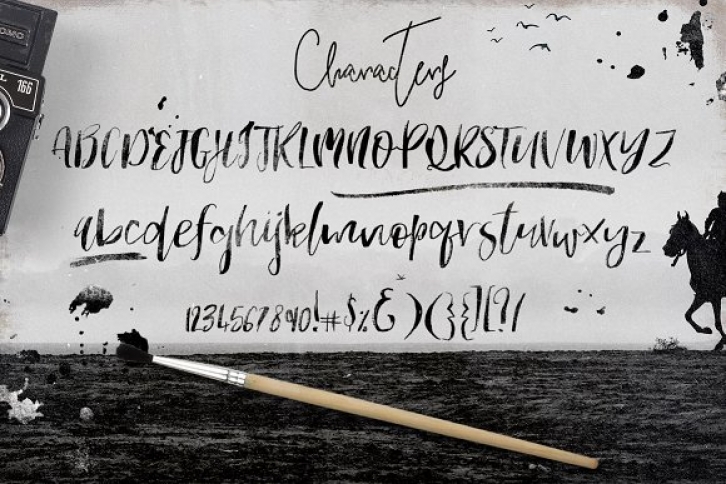 Characters
ABCDEFGHIJKLMNOPQRSTUVWXYZ
abcdefghijklmnopqrstuvwxyz
1234567890!#$%&)(}{][?/
166